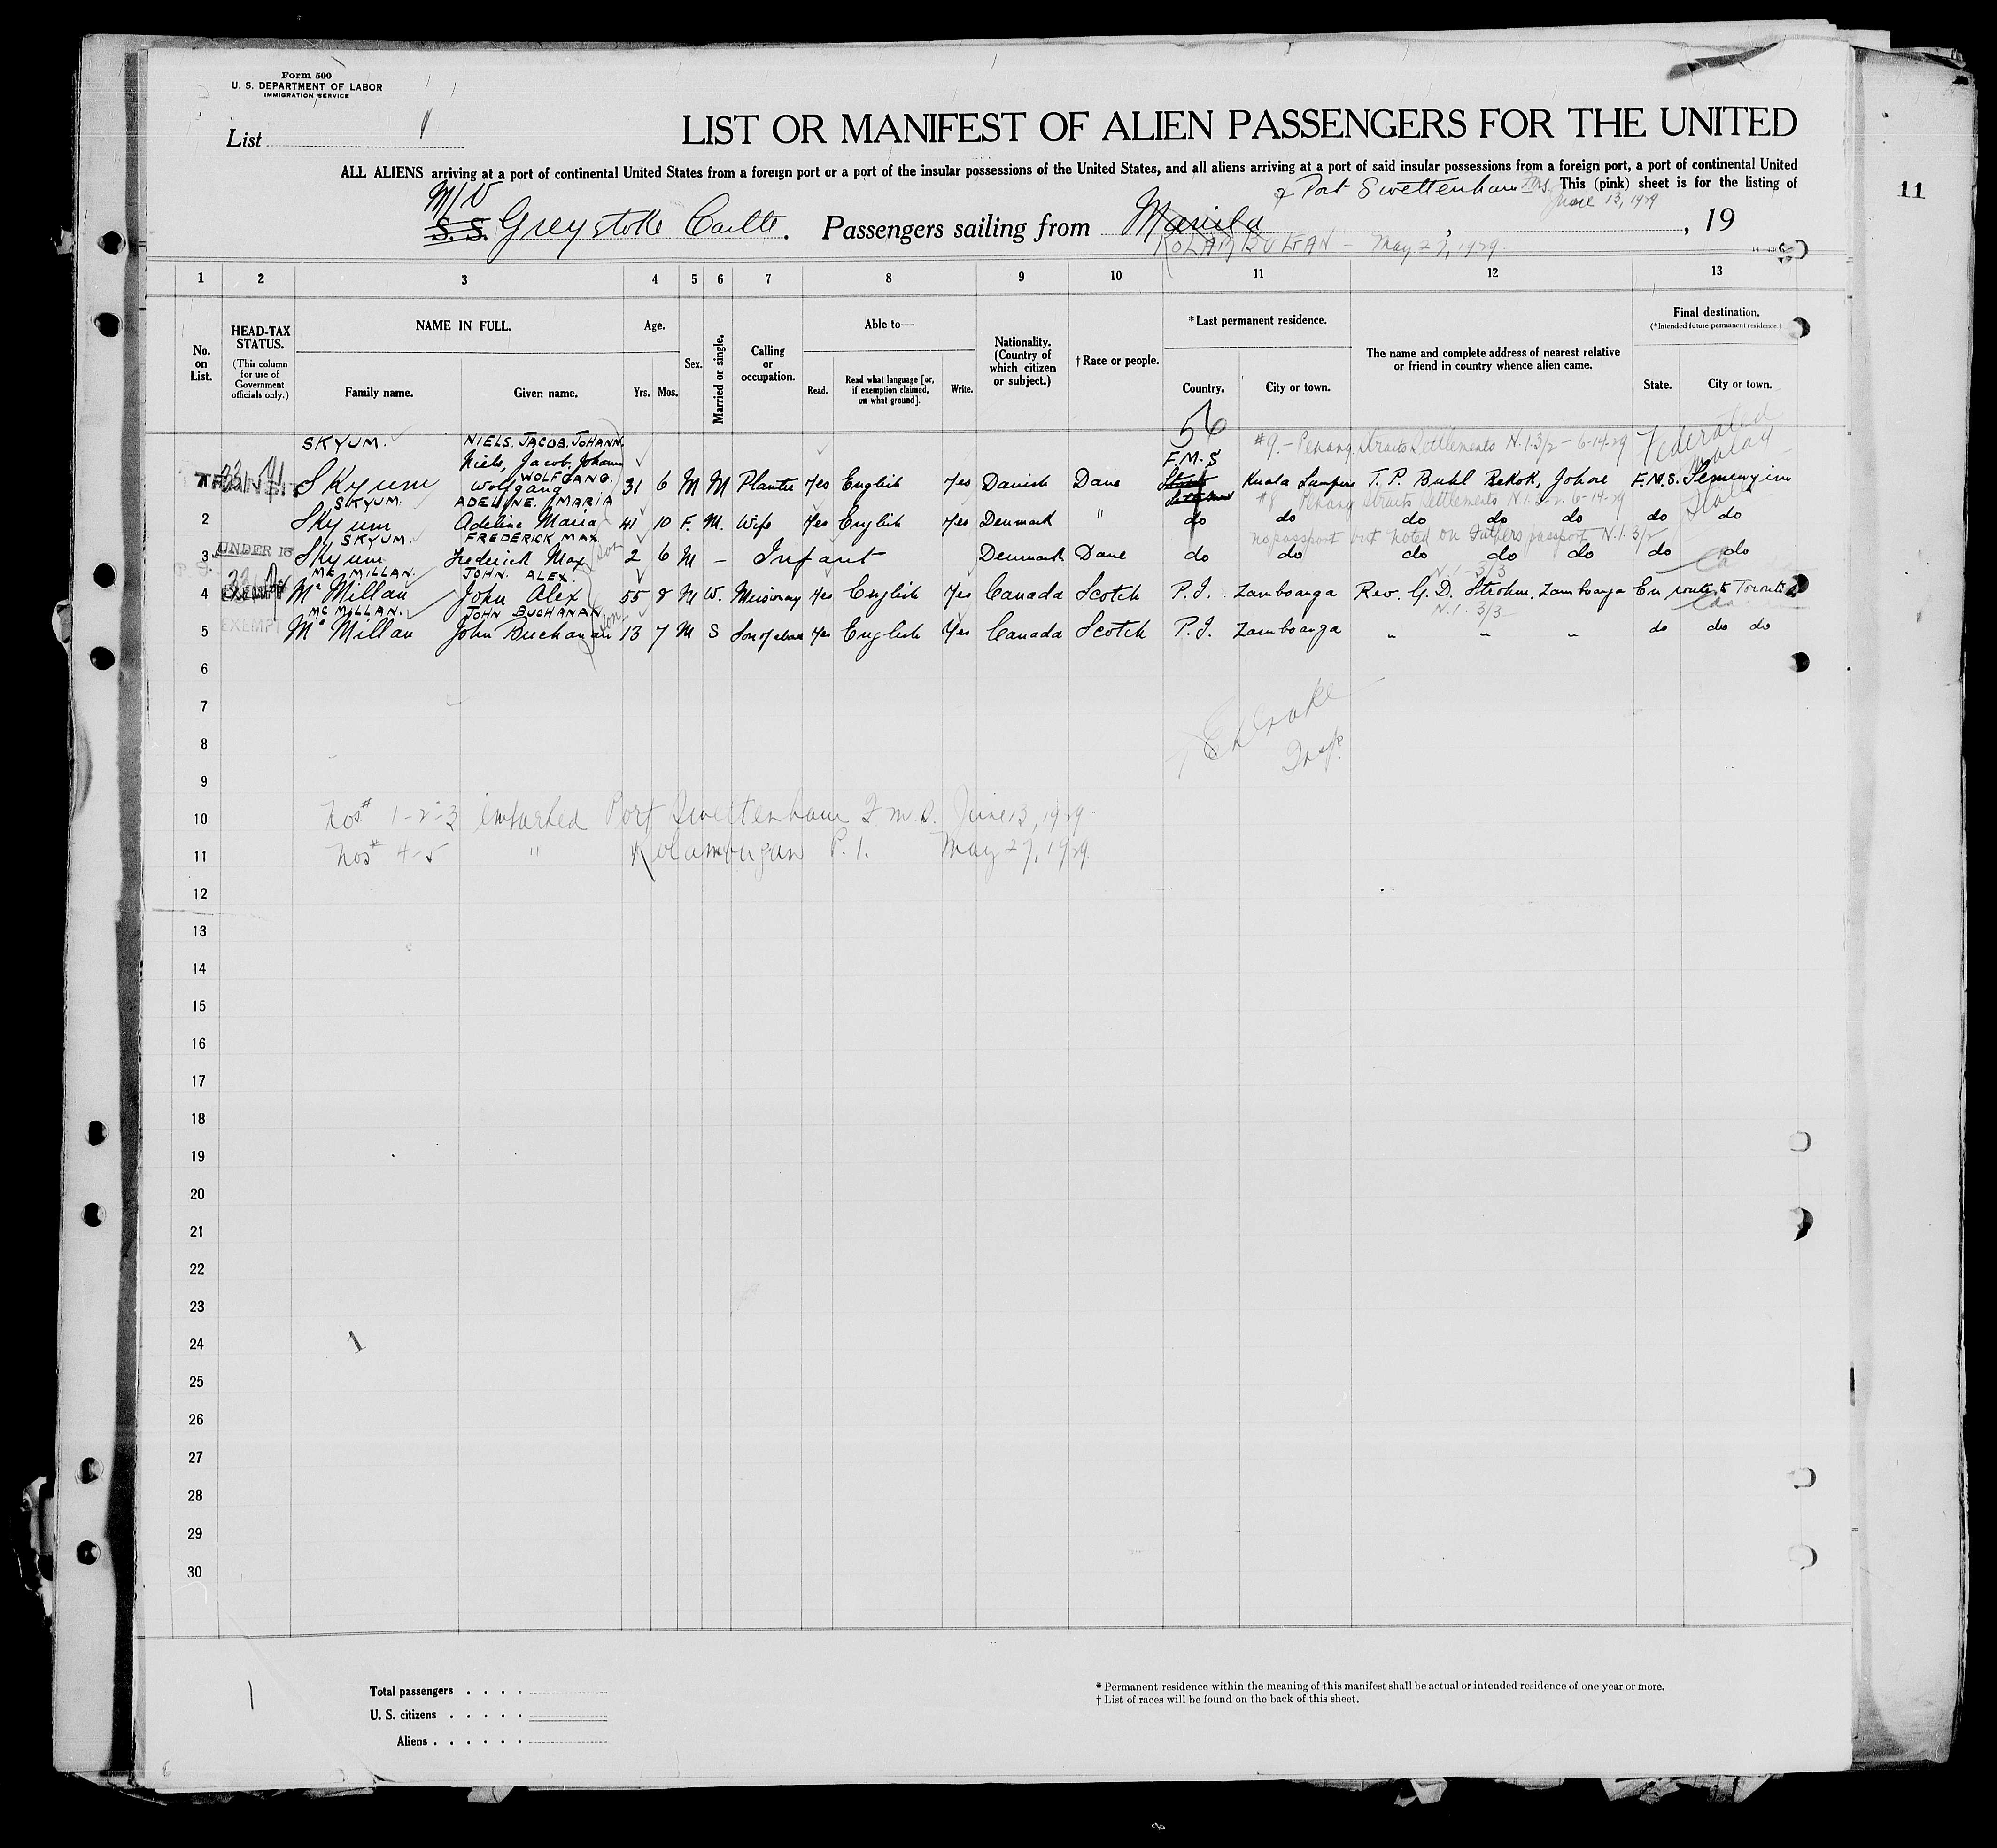 Form 500
U. S. DEPARTMENT OF LABOR
IMMIGRATION SERVICE
List 1
LIST OR MANIFEST OF ALIEN PASSENGERS FOR THE UNITED
ALL ALIENS arriving at a port of continental United States from a foreign port or a port of the insular possessions of the United States, and all aliens arriving at a port of said insular possessions from a foreign port, a port of continental United
& Port Swettenham FMS. This (pink) sheet is for the listing of
June 13, 1929
11
M/V
S.S. Greystoke Castle. Passengers sailing from Manila , 19
KOLAMBUGAN - May 27, 1929.
1 2 3 4 5 6 7 8 9 10 11 12 13
No. on List.
HEAD-TAX STATUS.
(This column for use of Government officials only.)
NAME IN FULL.
Family name. Given name.
Age.
Yrs. Mos.
Sex.
Married or single.
Calling or occupation.
Able to—
Read. Read what language [or, if exemption claimed, on what ground]. Write.
Nationality. (Country of which citizen or subject.)
† Race or people.
* Last permanent residence.
Country. City or town.
The name and complete address of nearest relative or friend in country whence alien came.
Final destination.
(* Intended future permanent residence.)
State. City or town.
56
SKYUM. NIELS. JACOB. JOHANN. #9.- Penang, Straits Settlements N.I.3/2 - 6-14-29 Federated Malay States
Niels, Jacob, Johann F.M.S
WOLFGANG.
TRANSIT Skyum Wolfgang 31 6 M M Planter Yes English Yes Danish Dane Kuala Lumpur T. P. Buhl Rekok, Johore F.M.S. Semenyin
SKYUM. ADELINE. MARIA #8 Penang Straits Settlements N.I.3-2. 6-14-29
2 Skyum Adeline Maria 41 10 F. M. Wife Yes English Yes Denmark " do do do do do do do
SKYUM. FREDERICK MAX. son no passport but noted on Fathers passport N.I.3/2
3 UNDER 16 Skyum Frederick Max 2 6 M – Infant Denmark Dane do do do do do do do
MC MILLAN. JOHN. ALEX. N.I-3/3
4 EXEMPT Mc Millan John Alex 55 8 M W. Missionary Yes English Yes Canada Scotch P.I. Zamboanga Rev. G. D. Strohm, Zamboanga En route to Toronto
MC MILLAN. JOHN BUCHANAN. son N.I. 3/3
5 EXEMPT Mc Millan John Buchanan 13 7 M S Son of above Yes English Yes Canada Scotch P.I. Zamboanga " " " do do do
6
7
8
Insp.
9
10 Nos# 1-2-3 embarked Port Swettenham F.M.S. June 13, 1929-
11 Nos# 4-5 " Kolambugan P.I. May 27, 1929.
12
13
14
15
16
17
18
19
20
21
22
23
24
1
25
26
27
28
29
30
1
Total passengers . . . .
U. S. citizens . . . . .
Aliens . . . . . .
* Permanent residence within the meaning of this manifest shall be actual or intended residence of one year or more.
† List of races will be found on the back of this sheet.